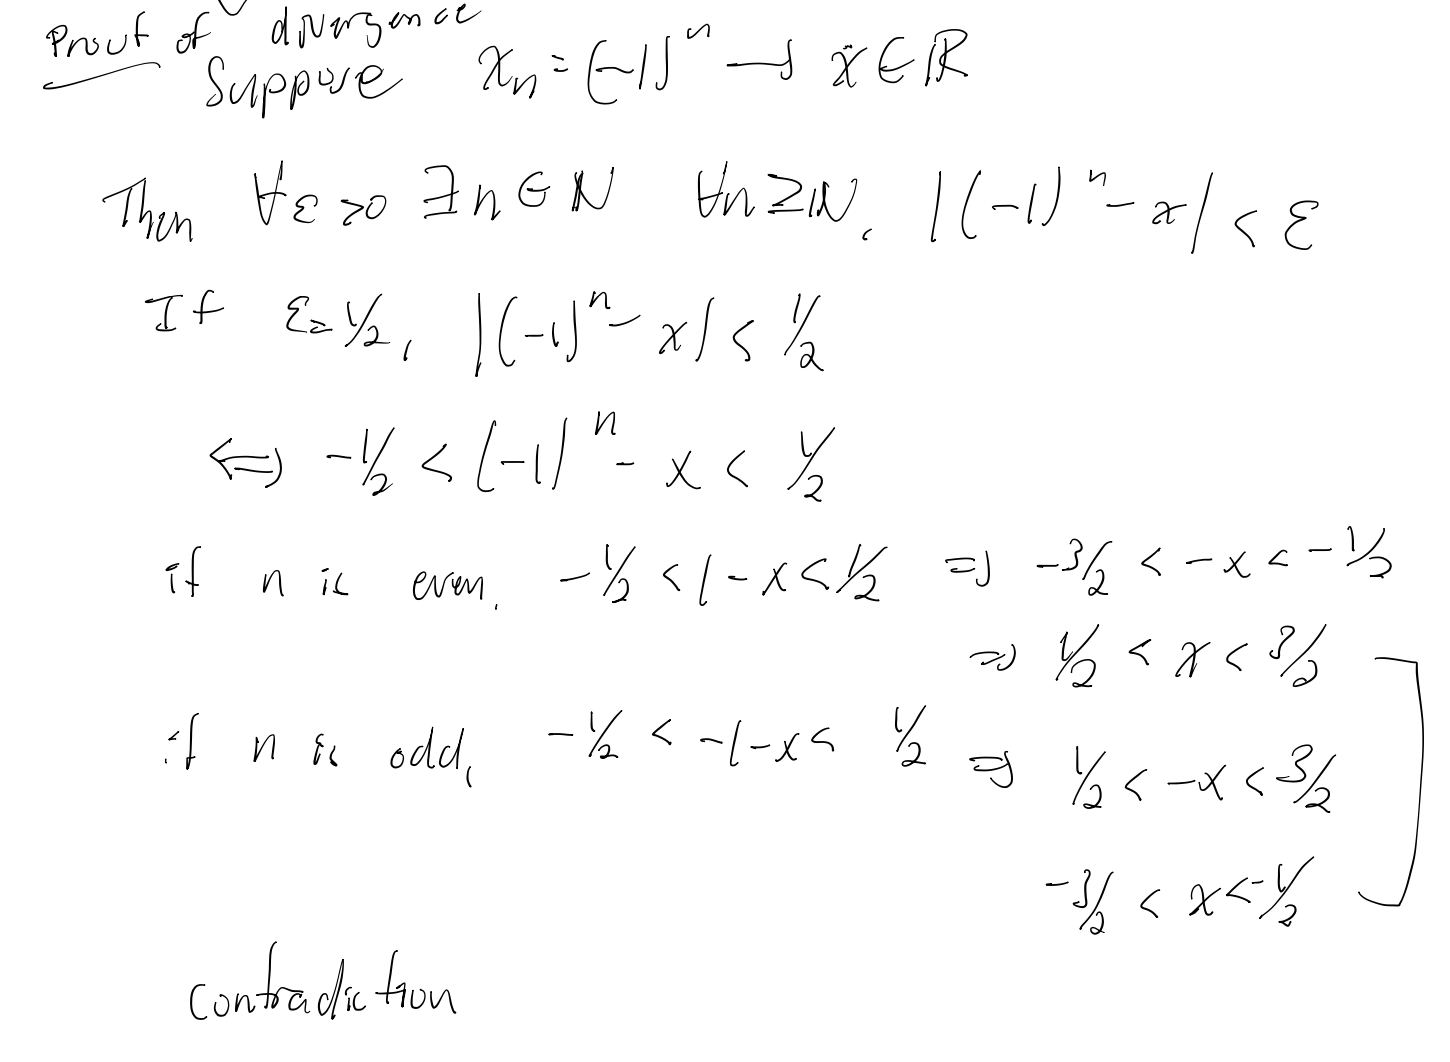 Proof of divergence
Suppose xₙ = (-1)ⁿ → x ∈ ℝ
Then ∀ε>0 ∃n∈ℕ ∀n≥ℕ, |(-1)ⁿ - x| < ε
If ε=1/2, |(-1)ⁿ - x| < 1/2
⟺ -1/2 < (-1)ⁿ - x < 1/2
if n is even, -1/2 < 1 - x < 1/2 ⇒ -3/2 < -x < -1/2
⇒ 1/2 < x < 3/2
if n is odd, -1/2 < -1 - x < 1/2 ⇒ 1/2 < -x < 3/2
-3/2 < x < -1/2
contradiction